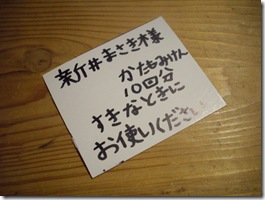 新井まさき様
かたもみけん
10回分
すきなときに
お使いください